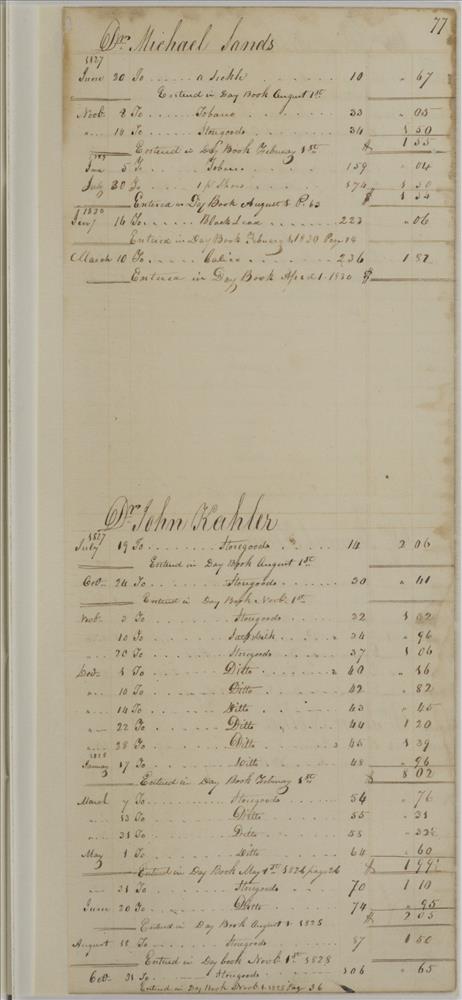 77
Dr Michael Sands
1827
June 20 To a Sickle 10 " 67
Entered in Day Book August 1st
Novb 2 To Tobacco 33 " 05
" 14 To Storegoods 34 1 50
Entered in Day Book February 1st $ 1 55
Jan 5 To Tobacco 159 " 04
July 30 To 1 pr Shoes 174 1 50
Entered in Day Book August 1 P. 63 $ 1 54
1830
Jany 16 To Black Lead 223 " 06
Entered in Day Book February 1 1830 Page 14
March 10 To Calico 236 1 87
Entered in Day Book April 1 1830 $
Dr John Kahler
1827
July 19 To Storegoods 14 2 06
Entered in Day Book August 1st
Oct 24 To Storegoods 30 " 41
Entered in Day Book Novb. 1st
Novb. 3 To Storegoods 32 1 02
" 10 To 34 " 96
" 20 To Storegoods 37 1 06
Decb 1 To Ditto 40 " 16
" 10 To Ditto 42 " 82
" 14 To Ditto 43 " 45
" 22 To Ditto 44 1 20
" 28 To Ditto 45 1 39
1828
January 17 To Ditto 48 " 96
Entered in Day Book February 1st $ 8 02
March 7 To Storegoods 54 " 76
" 13 To Ditto 55 " 31
" 31 To Ditto 58 " 32½
May 1 To Ditto 64 " 60
Entered in Day Book May 1st 1828 page 26 $ 1 99½
" 31 To Storegoods 70 1 10
June 20 To Ditto 74 " 95
Entered in Day Book August 1 1828 $ 2 05
August 11 To Storegoods 87 1 50
Entered in Day book Novb 1st 1828
Oct 31 To Storegoods 106 " 65
Entered in Day Book Novb 1 1828 Page 36